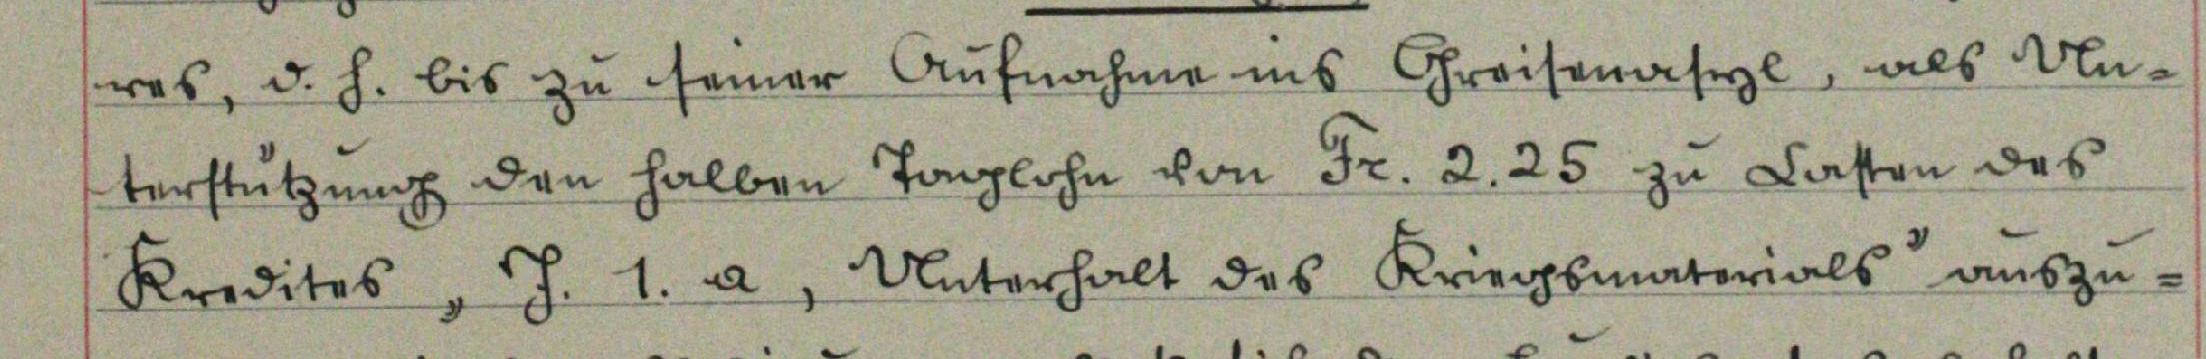 res, d. h. bis zu seiner Aufnahme ins Greisenasyl, als Un-
terstützung den halben Taglohn von Fr. 2.25 zu Lasten des
Kredites „J. 1. a, Unterhalt des Kriegsmaterials" auszu-